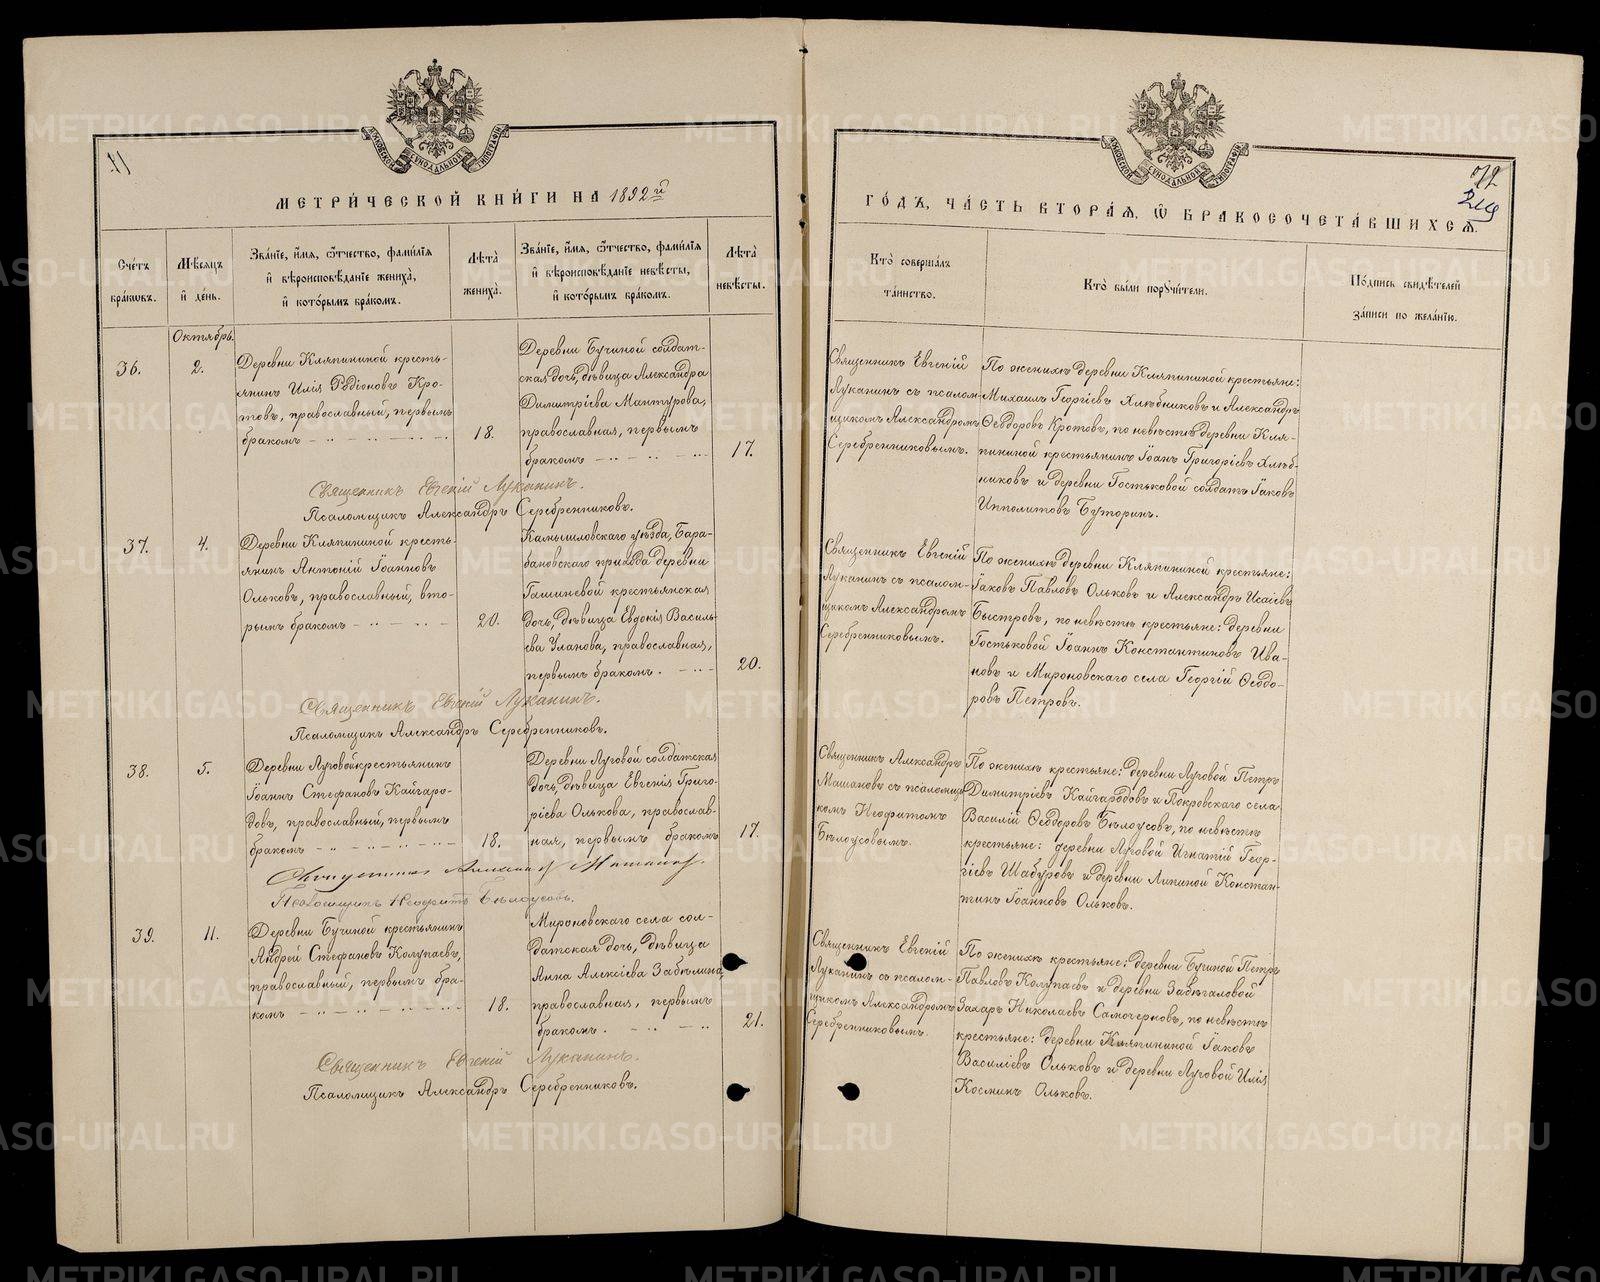 ХАРЬКОВСКОЙ СѴНОДАЛЬНОЙ ТИПОГРАФІИ
11.
МЕТРИ́ЧЕСКОЙ КНИ́ГИ НА 1892й
Сче́тъ бра́кѡвъ.
Мѣ́сяцъ и҆ де́нь.
Зва́нїе, и҆́мя, ѻ҆́тчество, фами́лїя и҆ вѣроисповѣ́данїе жениха̀, и҆ кото́рымъ бра́комъ.
Лѣ́та жениха̀.
Зва́нїе, и҆́мя, ѻ҆́тчество, фами́лїя и҆ вѣроисповѣ́данїе невѣ́сты, и҆ кото́рымъ бра́комъ.
Лѣ́та невѣ́сты.
Октябрь.
36.
2.
Деревни Кляпининой кресть-
янинъ Илія Родіоновъ Кро-
товъ, православный, первымъ
бракомъ
18.
Деревни Бучиной солдат-
ская дочь, дѣвица Александра
Димитріева Мантурова,
православная, первымъ
бракомъ
17.
Священникъ Евгеній Луканинъ.
Псаломщикъ Александръ Серебренниковъ.
37.
4.
Деревни Кляпининой кресть-
янинъ Антоній Іоанновъ
Ольковъ, православный, вто-
рымъ бракомъ
20.
Камышловскаго уѣзда, Бара-
бановскаго прихода деревни
Гашиневой крестьянская
дочь, дѣвица Евдокія Василь-
ева Уланова, православная,
первымъ бракомъ.
20.
Священникъ Евгеній Луканинъ.
Псаломщикъ Александръ Серебренниковъ.
38.
5.
Деревни Луговой крестьянинъ
Іоаннъ Стефановъ Кайгаро-
довъ, православный, первымъ
бракомъ
18.
Деревни Луговой солдатская
дочь, дѣвица Евгенія Григо-
ріева Олькова, православ-
ная, первымъ бракомъ
17.
Священникъ Александръ Машановъ.
Псаломщикъ Неофитъ Бѣлоусовъ.
39.
11.
Деревни Бучиной крестьянинъ
Андрей Стефановъ Колупаевъ,
православный, первымъ бра-
комъ
18.
Мироновскаго села сол-
датская дочь, дѣвица
Анна Алексіева Забѣлина,
православная, первымъ
бракомъ.
21.
Священникъ Евгеній Луканинъ.
Псаломщикъ Александръ Серебренниковъ.
ХАРЬКОВСКОЙ СѴНОДАЛЬНОЙ ТИПОГРАФІИ
72
ГО́ДЪ, ЧА́СТЬ ВТОРА́Я, Ѡ҆ БРАКОСОЧЕТА́ВШИХСЯ.
Кто̀ соверша́лъ та́инство.
Кто̀ бы́ли поручи́тели.
По́дпись свидѣ́телей за́писи по жела́нїю.
Священникъ Евгеній
Луканинъ съ псалом-
щикомъ Александромъ
Серебренниковымъ.
По женихѣ деревни Кляпининой крестьяне:
Михаилъ Георгіевъ Хлѣбниковъ и Александръ
Ѳеодоровъ Кротовъ, по невѣстѣ деревни Кля-
пининой крестьянинъ Іоаннъ Григоріевъ Хлѣб-
никовъ и деревни Гостьковой солдатъ Іаковъ
Ипполитовъ Буторинъ.
Священникъ Евгеній
Луканинъ съ псалом-
щикомъ Александромъ
Серебренниковымъ.
По женихѣ деревни Кляпининой крестьяне:
Іаковъ Павловъ Ольковъ и Александръ Исаіевъ
Быстровъ, по невѣстѣ крестьяне: деревни
Гостьковой Іоаннъ Константиновъ Ива-
новъ и Мироновскаго села Георгій Ѳеодо-
ровъ Петровъ.
Священникъ Александръ
Машановъ съ псаломщи-
комъ Неофитомъ
Бѣлоусовымъ.
По женихѣ крестьяне: деревни Луговой Петръ
Димитріевъ Кайгародовъ и Покровскаго села
Василій Ѳеодоровъ Бѣлоусовъ, по невѣстѣ
крестьяне: деревни Луговой Игнатій Геор-
гіевъ Шабуровъ и деревни Липиной Констан-
тинъ Іоанновъ Ольковъ.
Священникъ Евгеній
Луканинъ съ псалом-
щикомъ Александромъ
Серебренниковымъ.
По женихѣ крестьяне: деревни Бучиной Петръ
Павловъ Колупаевъ и деревни Забѣгаловой
Захаръ Николаевъ Самочерновъ, по невѣстѣ
крестьяне: деревни Кляпининой Іаковъ
Василіевъ Ольковъ и деревни Луговой Илія
Косминъ Ольковъ.
METRIKI.GASO-URAL.RU